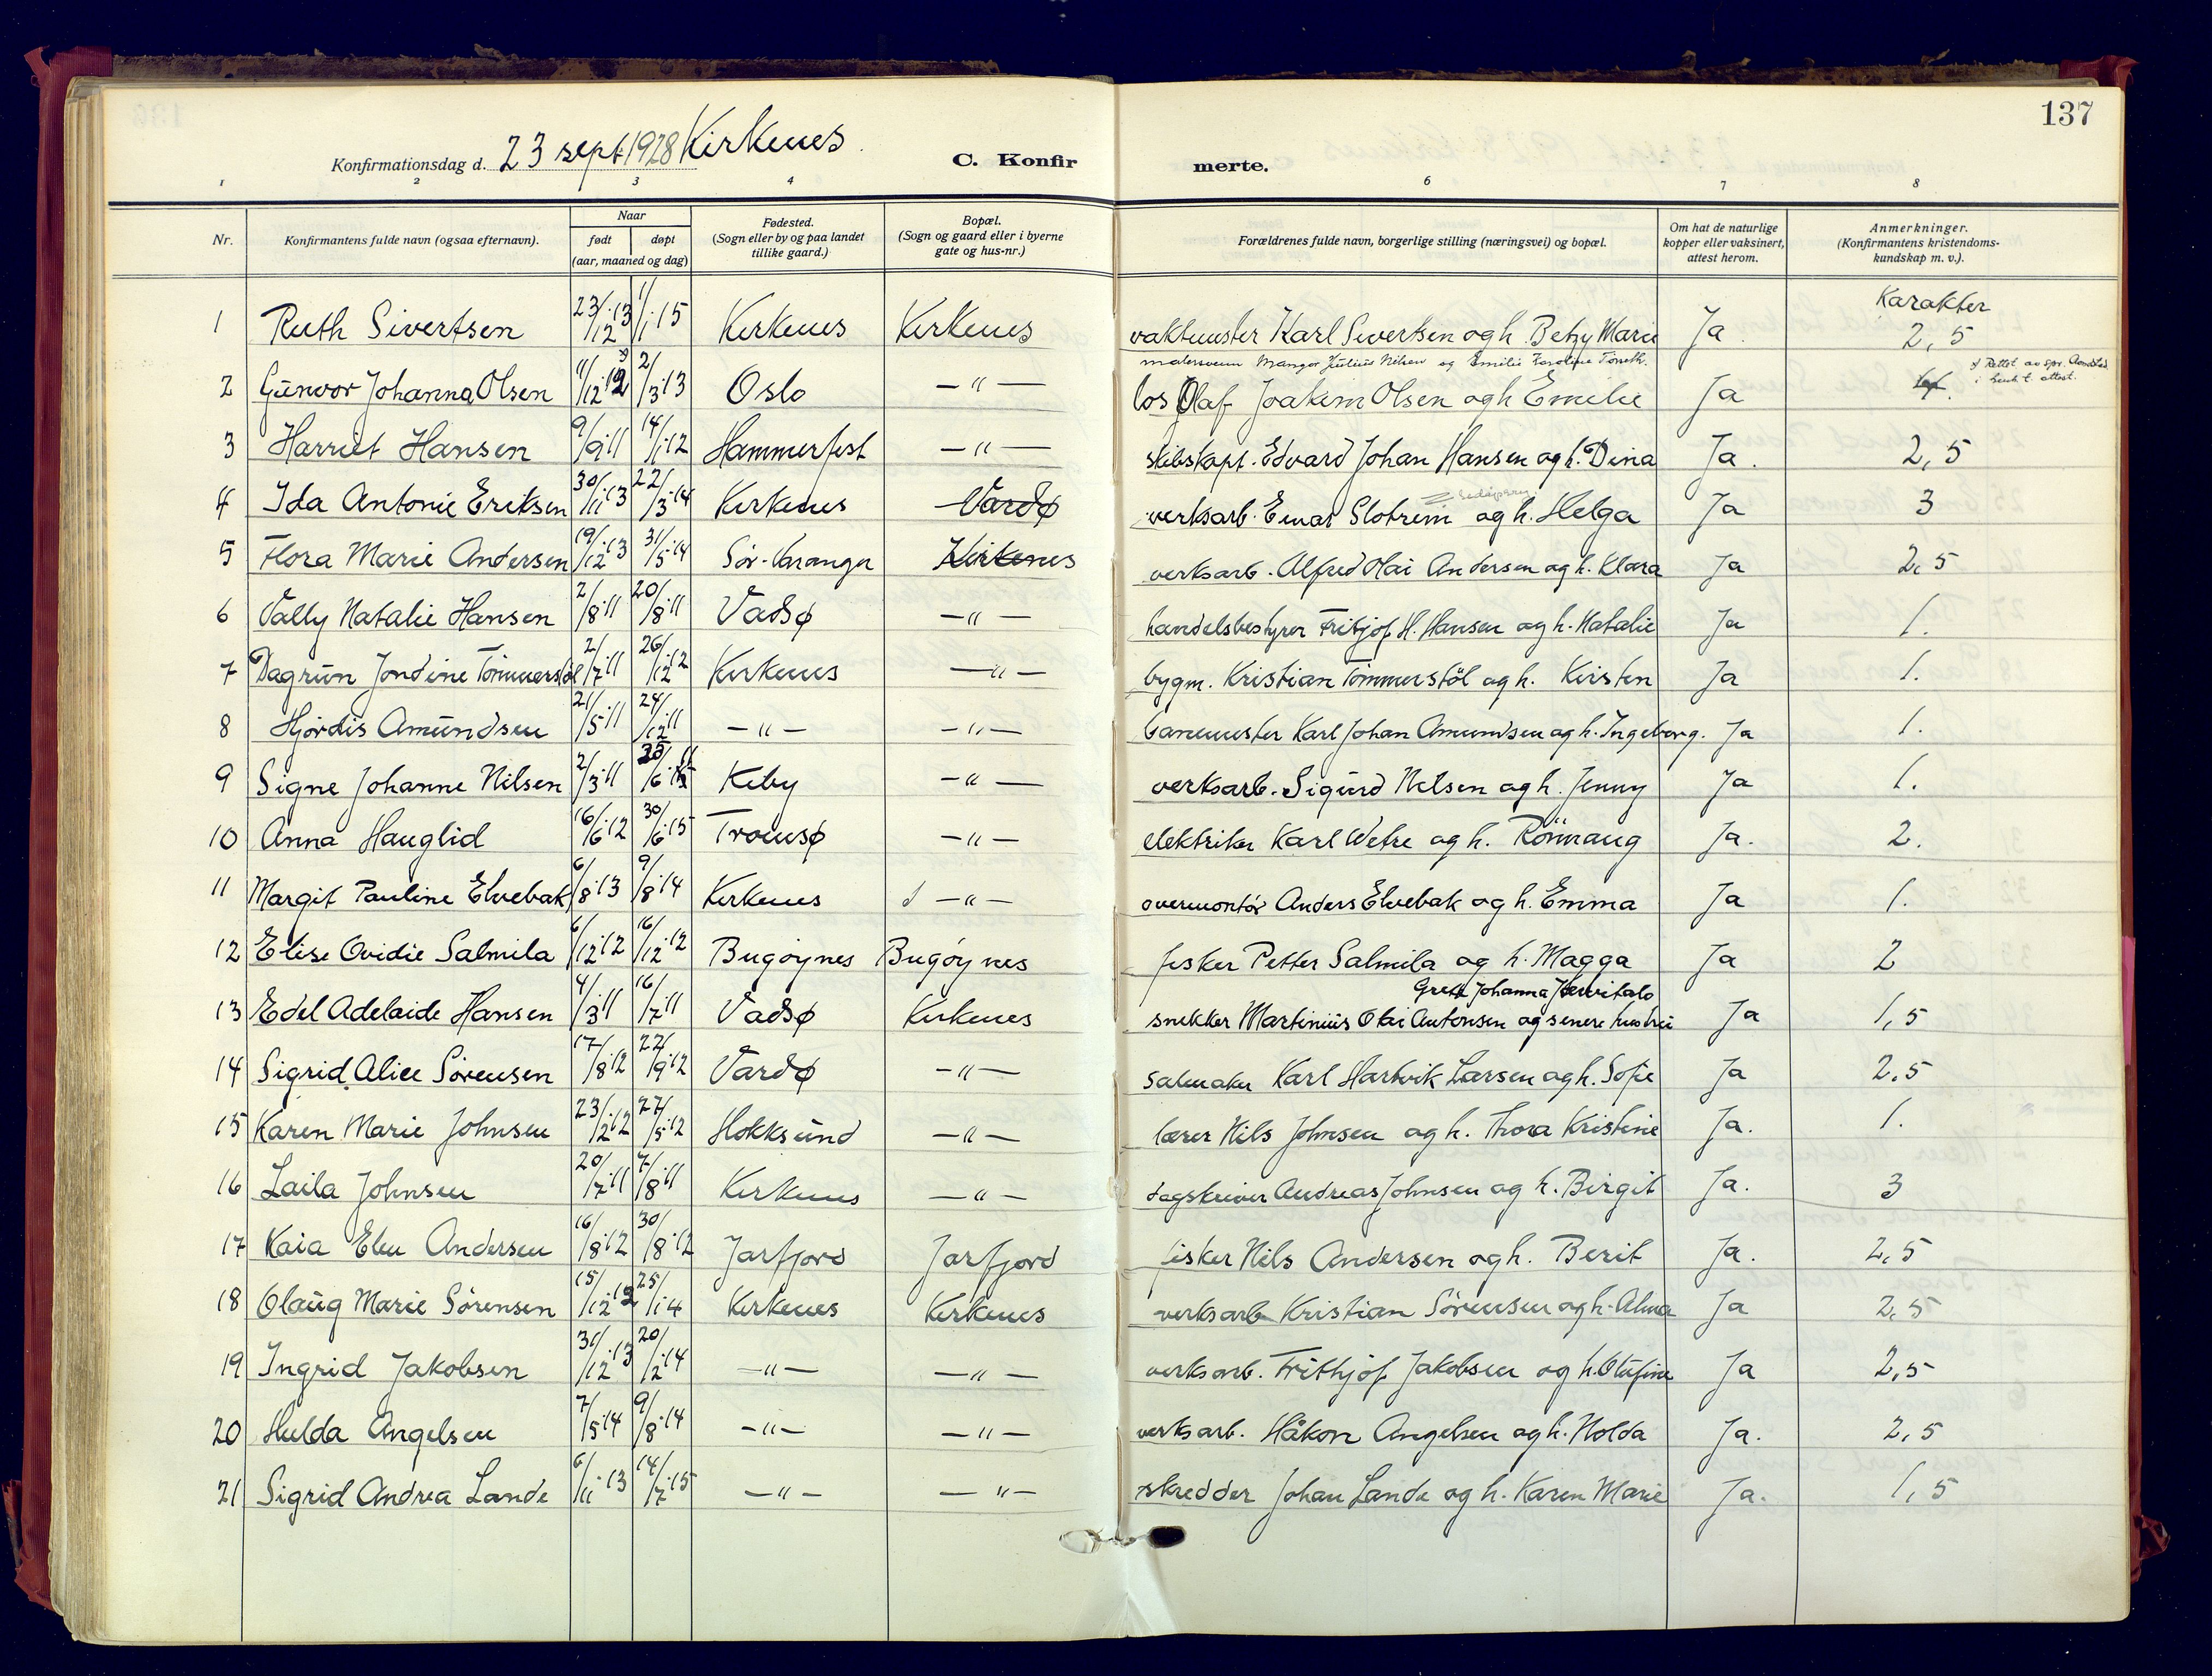 137
Konfirmationsdag d. 23 sept. 1928 Kirkenes
C. Konfirmerte.
1 2 3 4 6 7 8
Nr.
Konfirmantens fulde navn (ogsaa efternavn).
Naar
født døpt
(aar, maaned og dag)
Fødested.
(Sogn eller by og paa landet
tillike gaard.)
Bopæl.
(Sogn og gaard eller i byerne
gate og hus-nr.)
Forældrenes fulde navn, borgerlige stilling (næringsvei) og bopæl.
Om hat de naturlige
kopper eller vaksinert,
attest herom.
Anmerkninger.
(Konfirmantens kristendoms-
kundskap m. v.).
Karakter
1 Ruth Sivertsen 23/12 13 1/1 15 Kirkenes Kirkenes vaktmester Karl Sivertsen og h. Betzy Marie Ja 2,5
malersvenn Mangor Julius Nilsen og Emilie Karoline
2 Gunvor Johanna Olsen 11/12 12 2/3 13 Oslo —"— los Olaf Joakim Olsen og h. Emelie Ja
3 Harriet Hansen 9/9 11 14/1 12 Hammerfest —"— skibskapt. Edvard Johan Hansen og h. Dina Ja. 2,5
4 Ida Antonie Eriksen 30/11 13 22/3 14 Kirkenes Vardø verksarb. Einar Slotrem og h. Helga Ja 3
5 Flora Marie Andersen 19/12 13 31/5 14 Sør-Varanger Kirkenes verksarb. Alfred Olai Andersen og h. Klara Ja 2,5
6 Vally Natalie Hansen 2/8 11 20/8 11 Vadsø —"— handelsbestyrer Fritjof H. Hansen og h. Natalie Ja 1.
7 Dagrun Jondine Tömmerstöl 2/7 11 26/12 Kirkenes —"— bygm. Kristian Tömmerstöl og h. Kirsten Ja 1.
8 Hjördis Amundsen 21/5 11 24/12 11 —"— —"— banemester Karl Johan Amundsen og h. Ingeborg. Ja 1.
9 Signe Johanne Nilsen 2/3 11 Kiby —"— verksarb. Sigurd Nilsen og h. Jenny Ja 1.
10 Anna Hauglid 16/6 12 30/6 15 Tromsø —"— elektriker Karl Wetre og h. Rönnaug Ja. 2.
11 Margit Pauline Elvebak 6/8 13 9/8 14 Kirkenes —"— overmontör Anders Elvebak og h. Emma Ja 1.
12 Elise Ovidie Salmila 6/12 12 16/12 12 Bugöynes Bugöynes fisker Petter Salmila og h. Magga Ja 2
Johanna
13 Edel Adelaide Hansen 4/3 11 16/7 11 Vadsø Kirkenes snekker Martinius Olai Antonsen og senere hustru Ja 1,5
14 Sigrid Alice Sörensen 17/8 12 22/9 12 Vardø —"— salmaker Karl Hartvik Larsen og h. Sofie Ja 2,5
15 Karen Marie Johnsen 23/2 12 27/5 12 Hokksund —"— lærer Nils Johnsen og h. Thora Kristine Ja. 1.
16 Laila Johnsen 20/7 11 7/8 11 Kirkenes —"— dagskriver Andreas Johnsen og h. Birgit Ja. 3
17 Kaia Elen Andersen 16/8 12 30/8 12 Jarfjord Jarfjord fisker Nils Andersen og h. Berit Ja. 2,5
18 Olaug Marie Sörensen 15/12 12 25/1 14 Kirkenes Kirkenes verksarb Kristian Sörensen og h. Alma Ja 2,5
19 Ingrid Jakobsen 31/12 13 20/2 14 —"— —"— verksarb. Frithjof Jakobsen og h. Olufine Ja 2,5
20 Hulda Angelsen 7/5 14 9/8 14 —"— —"— verksarb. Håkon Angelsen og h. Holda Ja. 2,5
21 Sigrid Andrea Lande 6/11 13 14/7 15 —"— —"— skredder Johan Lande og h. Karen Marie Ja. 1,5